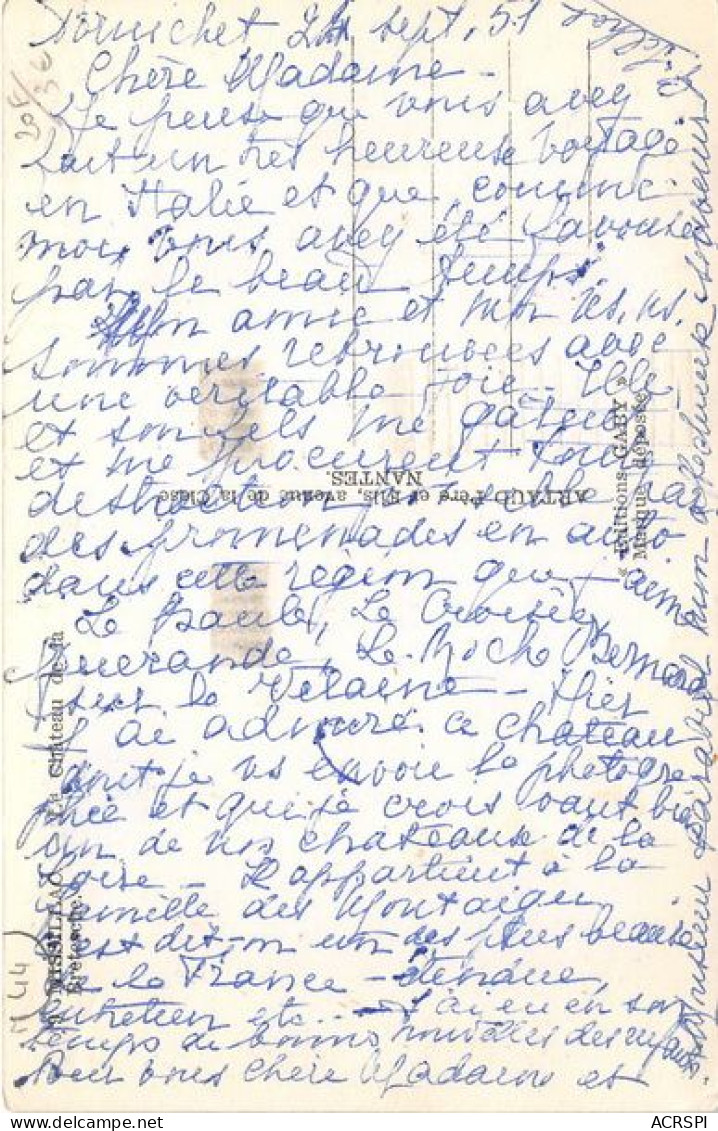 Pornichet 24 sept. 51
Chère Madame –
Je pense que vous avez
fait un très heureuse voyage
en Italie et que, comme
moi, vous avez été favorisée
par le beau temps.
Mon amie et moi ns. ns.
sommes retrouvées avec
une véritable joie – Elle
et son fils me gâtent
et me procurent toute
distraction possible par
des promenades en auto
dans cette région que j'aime
La Baule, Le Croisic,
Guérande, La Roche Bernard
sur la Vilaine – Hier
j'ai admiré ce château
dont je vs envoie la photogra
phie et que je crois vaut bien
un de nos châteaux de la
Loire – Il appartient à la
famille des Montaigu,
est dit-on un des plus beaux
de la France – étendue,
entretien etc. – J'ai eu en son
temps de bonnes nouvelles des enfants
Pour vous chère Madame et
Monsieur Barabaud mon affectueux souvenir
20F/36
M 44
MISSILLAC. – Le Château de la
Bretesche.
ARTAUD Père et Fils, avenue de la Close
NANTES.
« Editions GABY »
Marque déposée
ACRSPI